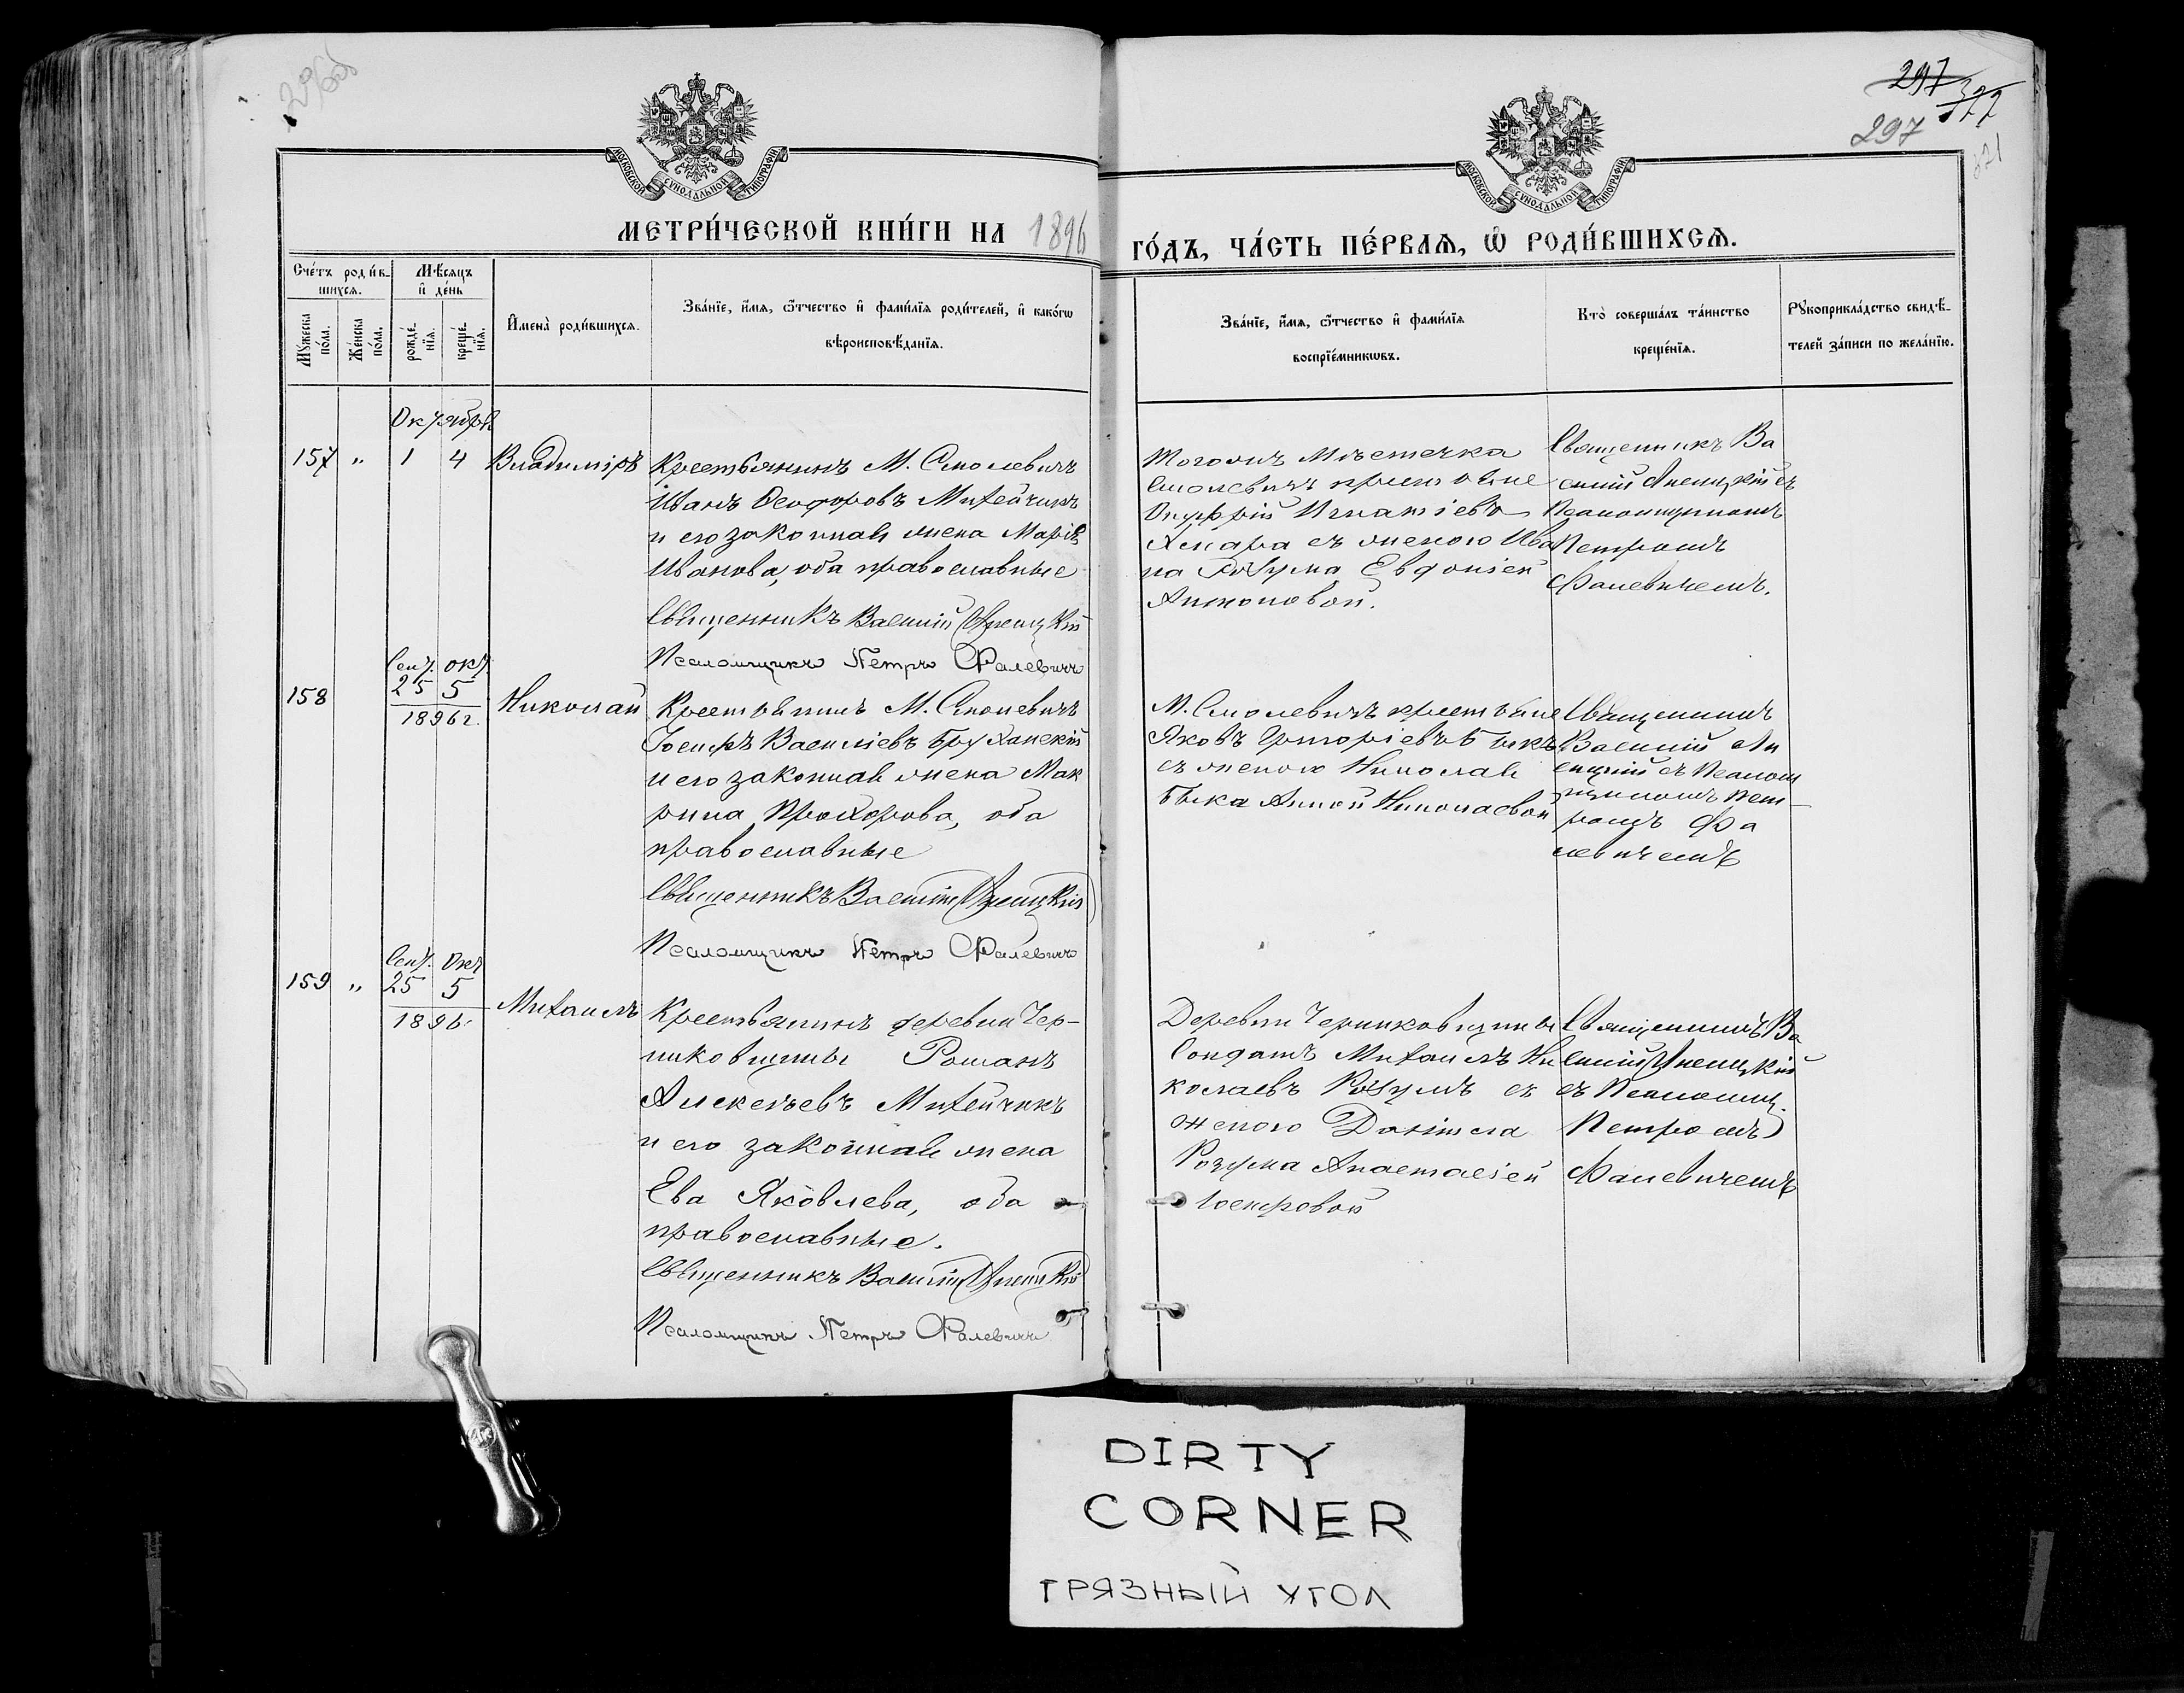 297
322
297
МОСКОВСКОЙ СѴНОДАЛЬНОЙ ТИПОГРАФІИ
МОСКОВСКОЙ СѴНОДАЛЬНОЙ ТИПОГРАФІИ
МЕТРИ́ЧЕСКОЙ КНИ́ГИ НА 1896
ГО́ДЪ, ЧА́СТЬ ПЕ́РВАѦ, Ѡ҆ РОДИ́ВШИХСѦ.
Сче́тъ роди́в-
шихсѧ.
Мꙋ́жеска по́ла.
Же́нска по́ла.
Мѣ́сяцъ
и҆ де́нь
рожде́нїѧ.
креще́нїѧ.
И҆мена̀ роди́вшихсѧ.
Зва́нїе, и҆́мѧ, ѻ҆́тчество и҆ фами́лїѧ роди́телей, и҆ како́гѡ
вѣроисповѣ́данїѧ.
Зва́нїе, и҆́мѧ, ѻ҆́тчество и҆ фами́лїѧ
воспрїе́мникѡвъ.
Кто̀ соверша́лъ та́инство
креще́нїѧ.
Рꙋкоприкла́дство свидѣ́-
телей за́писи по жела́нїю.
Октября
157 " 1 4 Владиміръ
Крестьянинъ М. Смолевичъ
Иванъ Ѳеодоровъ Михейчикъ
и его законная жена Марія
Иванова, оба православные
Священникъ Василій
Псаломщикъ Петръ Фалевичъ
Тогожъ мѣстечка
Смолевичъ крестьяне
Онуфрій Игнатіевъ
Хмара съ женою Ива
на Розума Евдокіей
Антоновой.
Священникъ Ва
силій съ
Псаломщикомъ
Петромъ
Фалевичемъ.
Сент. Окт.
158 25 5
1896 г.
Николай
Крестьянинъ М. Смолевичъ
Іосифъ Василіевъ Бруханскій
и его законная жена Мак
рина Прохорова, оба
православные
Священникъ Василій
Псаломщикъ Петръ Фалевичъ
М. Смолевичъ крестьяне
Яковъ Григоріевъ Быкъ
съ женою Николая
Быка Анной Николаевой
Священникъ
Василій
съ Псалом
щикомъ Пет-
ромъ Фа
левичемъ
Сент. Окт
159 " 25 5
1896
Михаилъ
Крестьянинъ деревни Чер-
никовщины Романъ
Алексѣевъ Михейчикъ
и его законная жена
Ева Яковлева, оба
православные.
Священникъ Василій
Псаломщикъ Петръ Фалевичъ
Деревни Черниковщины
Солдатъ Михаилъ Ни
колаевъ Розумъ съ
женою Даніила
Розума Анастасіей
Іосифовой
Священникъ Ва
силій
съ Псаломщ.
Петромъ
Фалевичемъ
DIRTY
CORNER
ГРЯЗНЫЙ УГОЛ